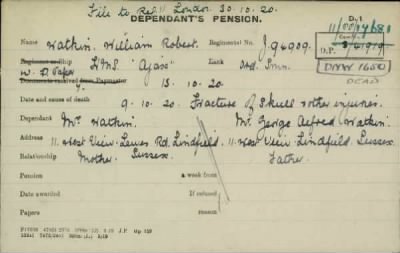 File to Rd. 11 London 30.10.20.
DEPENDANT'S PENSION.
D.1
11/00/4680
D.P. 3/41919
Name Watkin. William Robert. Regimental No. J.94909.
Regiment or Ship HMS "Ajax" Rank Ord. Smn.
DNW/1650
DEAD
Documents received from Paymaster 13.10.20
Date and cause of death 9.10.20. Fracture of Skull & other injuries.
Dependant Mrs Watkin. Mr. George Alfred Watkin.
Address 11 West View. Lewes Rd. Lindfield. 11. West View Lindfield. Sussex.
Relationship Mother. Sussex. Father.
Pension a week from
Date awarded If refused
Papers reason